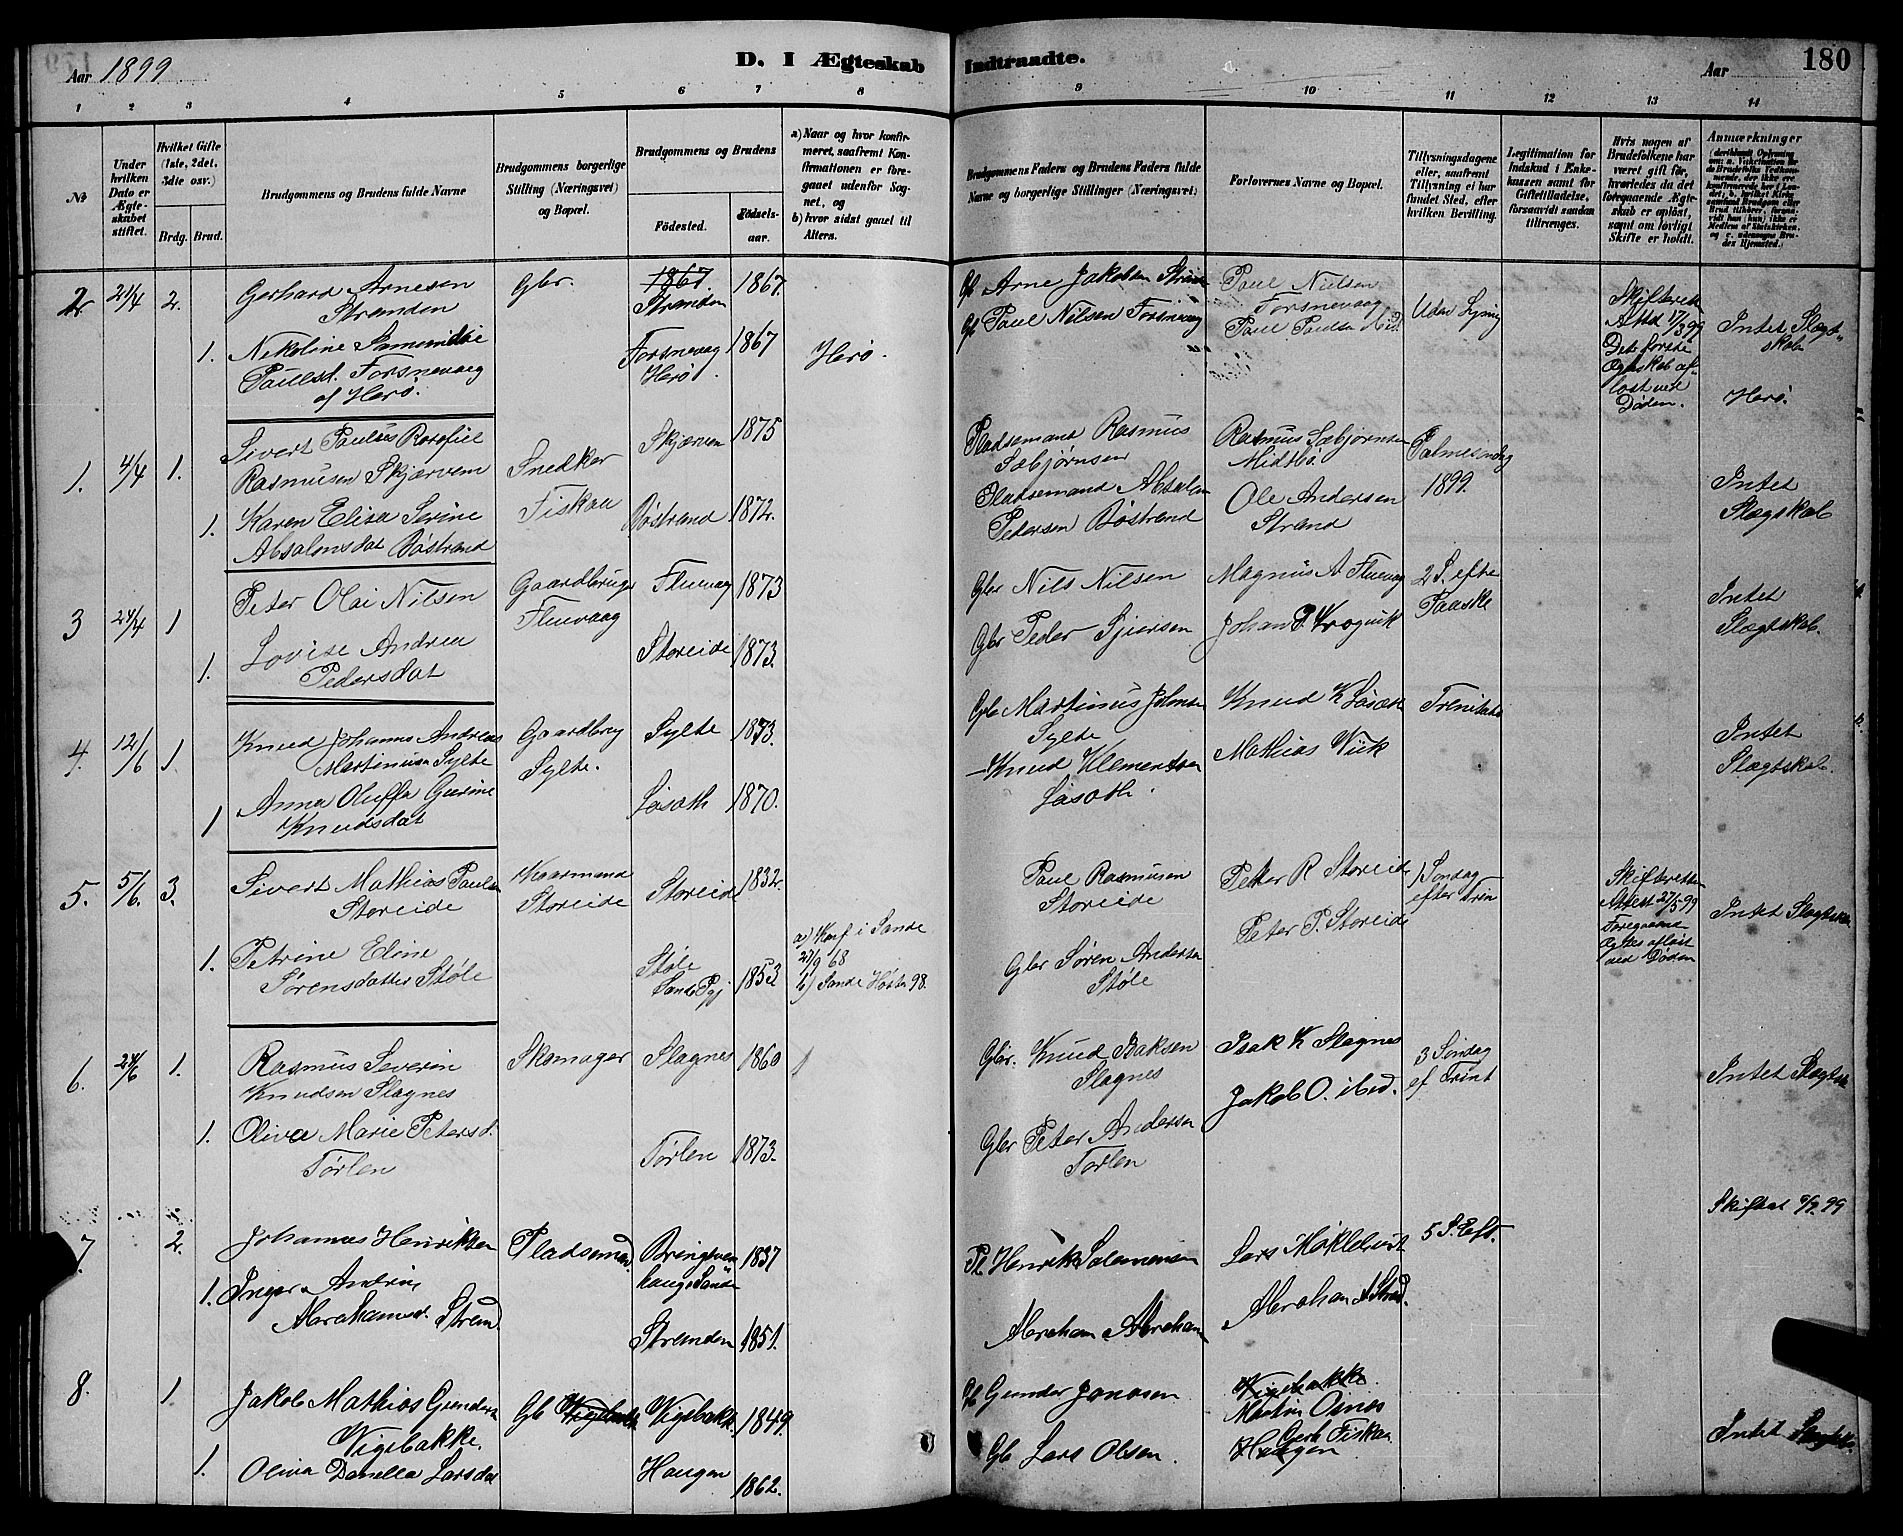 Aar 1899
D. I Ægteskab
Indtraadte.
Aar
180
1
2
3
4
5
6
7
8
9
10
11
12
13
14
No
Under hvilken Dato er Ægteskabet stiftet.
Hvilket Gifte (1ste, 2det, 3dte osv.)
Brdg.
Brud.
Brudgommens og Brudens fulde Navne
Brudgommens borgerlige Stilling (Næringsvei) og Bopæl.
Brudgommens og Brudens
Fødested.
Fødselsaar.
a) Naar og hvor konfirmeret, saafremt Konfirmationen er foregaaet udenfor Sognet, og
b) hvor sidst gaaet til Alters.
Brudgommens Faders og Brudens Faders fulde Navne og borgerlige Stillinger (Næringsvei)
Forlovernes Navne og Bopæl.
Tillysningsdagene eller, saafremt Tillysning ei har fundet Sted, efter hvilken Bevilling.
Legitimation for Indskud i Enkekassen samt for Giftetilladelse, forsaavidt saadan tiltrænges.
Hvis nogen af Brudefolkene har været gift før, hvorledes da det foregaaende Ægteskab er opløst, samt om lovligt Skifte er holdt.
Anmærkninger
2. 21/4 2. Gerhard Arnesen Gbr. 1867. 1867.
Stranden Stranden
1. Nikoline Samunline Forsnevaag 1867 Herø.
Paulsd. Forsnevaag Herø.
af Herø.
Gb Arne Jakobsen Strand Paul Nilsen
Forsnevaag
Gb Paul Nilsen Forsnevaag Paul Paulsen Uden Lysning
Skifteret
Attst 17/3 99
Det første
Ægteskab af-
løst ved
Døden.
Intet Slægt-
skab
Herø.
1. 4/4 1. Sivert Paulus Rorgfiel Snedker Skjærven 1875
Rasmusen Skjærvem Fiskaa
1. Karen Elisa Serine Bøstrand 1872.
Absalonsdat Bøstrand
Pladsemand Rasmus Rasmus Sæbjørnsen Palmesøndag
Sæbjørnsen Midtbø. 1899.
Pladsemand Absalon Ole Andersen
Pedersen Bøstrand Strand
Intet
Slægtskab
3 24/4 1 Peter Olai Nilsen Gaardbruger Fluevaag 1873
Fluevaag
1. Lovise Andrea Storeide 1873.
Pedersdat
Gbr Nils Nilsen Magnus A Fluevaag 2 S. efter
Paaske
Gbr Peder Sjursen Johan P. Krogvik
Intet
Slægtskab.
4. 12/6 1. Knud Johannes Andreas Gaardbrug Sylte 1873.
Martinusn Sylte Sylte.
1 Anna Oluffa Gurine Løsæth 1870.
Knudsdat
Gb Martinus Johnsen Knud K Løsæth Trinitatis
Sylte
— Knud Klementsen Mathias Viik
Løsæth.
Intet
Slægtskab.
5. 5/6. 3. Sivert Mathias Paulsen Kaarmand Storeide 1832.
Storeide Storeide
1. Petrine Eline Støle 1853
Sørensdatter Støle Sande Pgj
a) Konf i Sande
27/9 68
b) Sande Høsten 98.
Paul Rasmusen Peter R Storeide 1 Søndag
Storeide efter Trin
Peter P. Storeide
Gbr Søren Andersen
Støle
Skifteretten
Attest 27/5 99
Foregaaende
Ægtes afløst
ved Døden
Intet Slægtskab
6. 24/6 1. Rasmus Severin Skomager Slagnes 1860
Knudsen Slagnes
1. Oliva Marie Petersd. Tørlen 1873.
Tørlen
Gbr. Knud Isaksen Isak K Slagnes 3 Søndag
Slagnes ef Trint
Jakob O. ibid.
Gbr Peter Andersen
Tørlen
Intet Slægtsk
7. 2. Johannes Henriksen Pladsemand Bringsven 1837
hauge Sande
1. Inger Andrine
Abrahamsd. Strand. Stranden 1851.
Pl Henrik Salomonsen Lars Møklebust 5 S. Eft.
Abraham Abraham Abraham A Strand.
Skiftat 9/7. 99
8. 1 Jakob Mathias Gundersn Gb Vigebakk Vigebakk. 1849.
Vigebakke.
1. Oliva Danella Larsdat Haugen 1862.
Gb Gunder Jonasen Vigebakke.
Martin Osnes
Gerh Fiskaa
Gb Lars Olsen. Haugen
Intet Slægtsk.